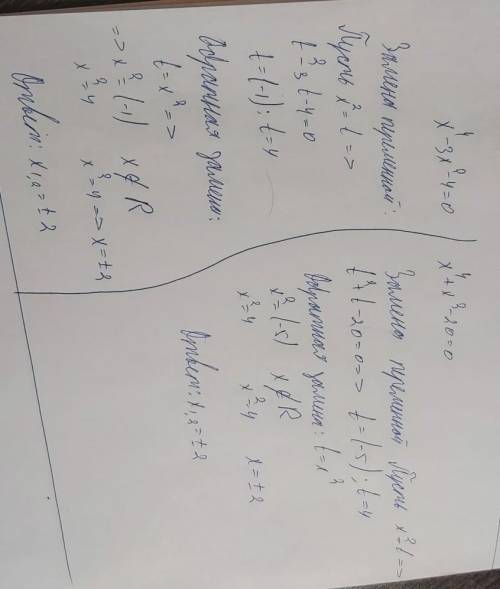 x⁴-3x²-4=0
Замена переменной:
Пусть x²=t =>
t²-3t-4=0
t=(-1); t=4
Обратная замена:
t=x² =>
=> x²=(-1) x∉R
x²=4 x²=4 => x=±2
Ответ: x₁,₂=±2
x⁴+x²-20=0
Замена переменной Пусть x²=t =>
t²+t-20=0 => t=(-5); t=4
Обратная замена: t=x²
x²=(-5) x∉R
x²=4 x²=4 x=±2
Ответ: x₁,₂=±2